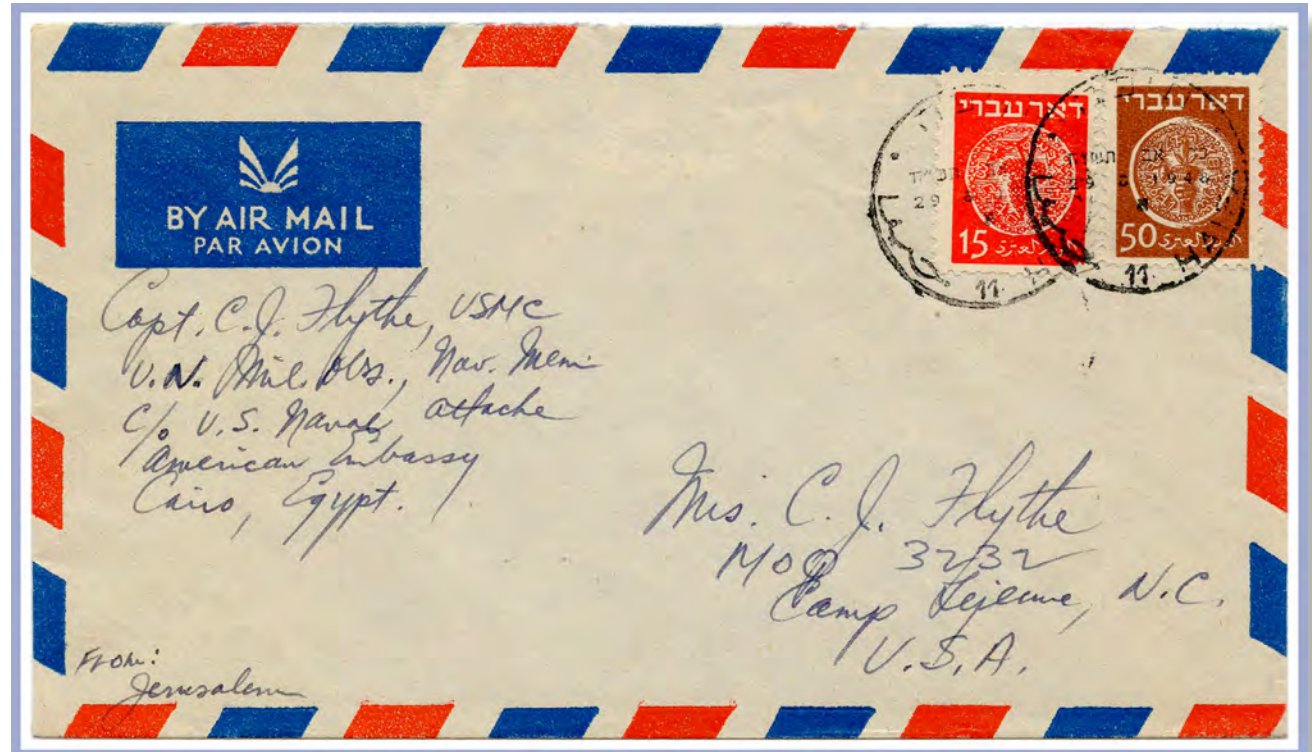 BY AIR MAIL
PAR AVION
דאר עברי
15
דאר עברי
50
29
11
29 1948
11
HAIFA
Capt. C. J. Flythe, USMC
U.N. Mil. Obs., Nav. Mem.
C/o U.S. Naval Attache
American Embassy
Cairo, Egypt.
Mrs. C. J. Flythe
MOQ 3232
Camp Lejeune, N.C.
U.S.A.
From:
Jerusalem